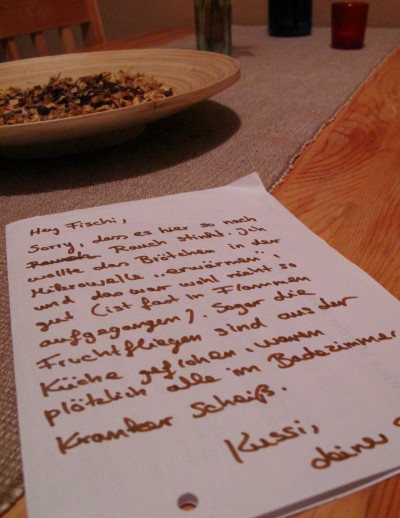 Hey Fischi,
Sorry, dass es hier so nach
Rauch Rauch stinkt. Ich
wollte das Brötchen in der
Mikrowelle „erwärmen",
und das war wohl nicht so
gut (ist fast in Flammen
aufgegangen). Sogar die
Fruchtfliegen sind aus der
Küche geflohen, waren
plötzlich alle im Badezimmer
Kranker Scheiß.
Kussi,
deine